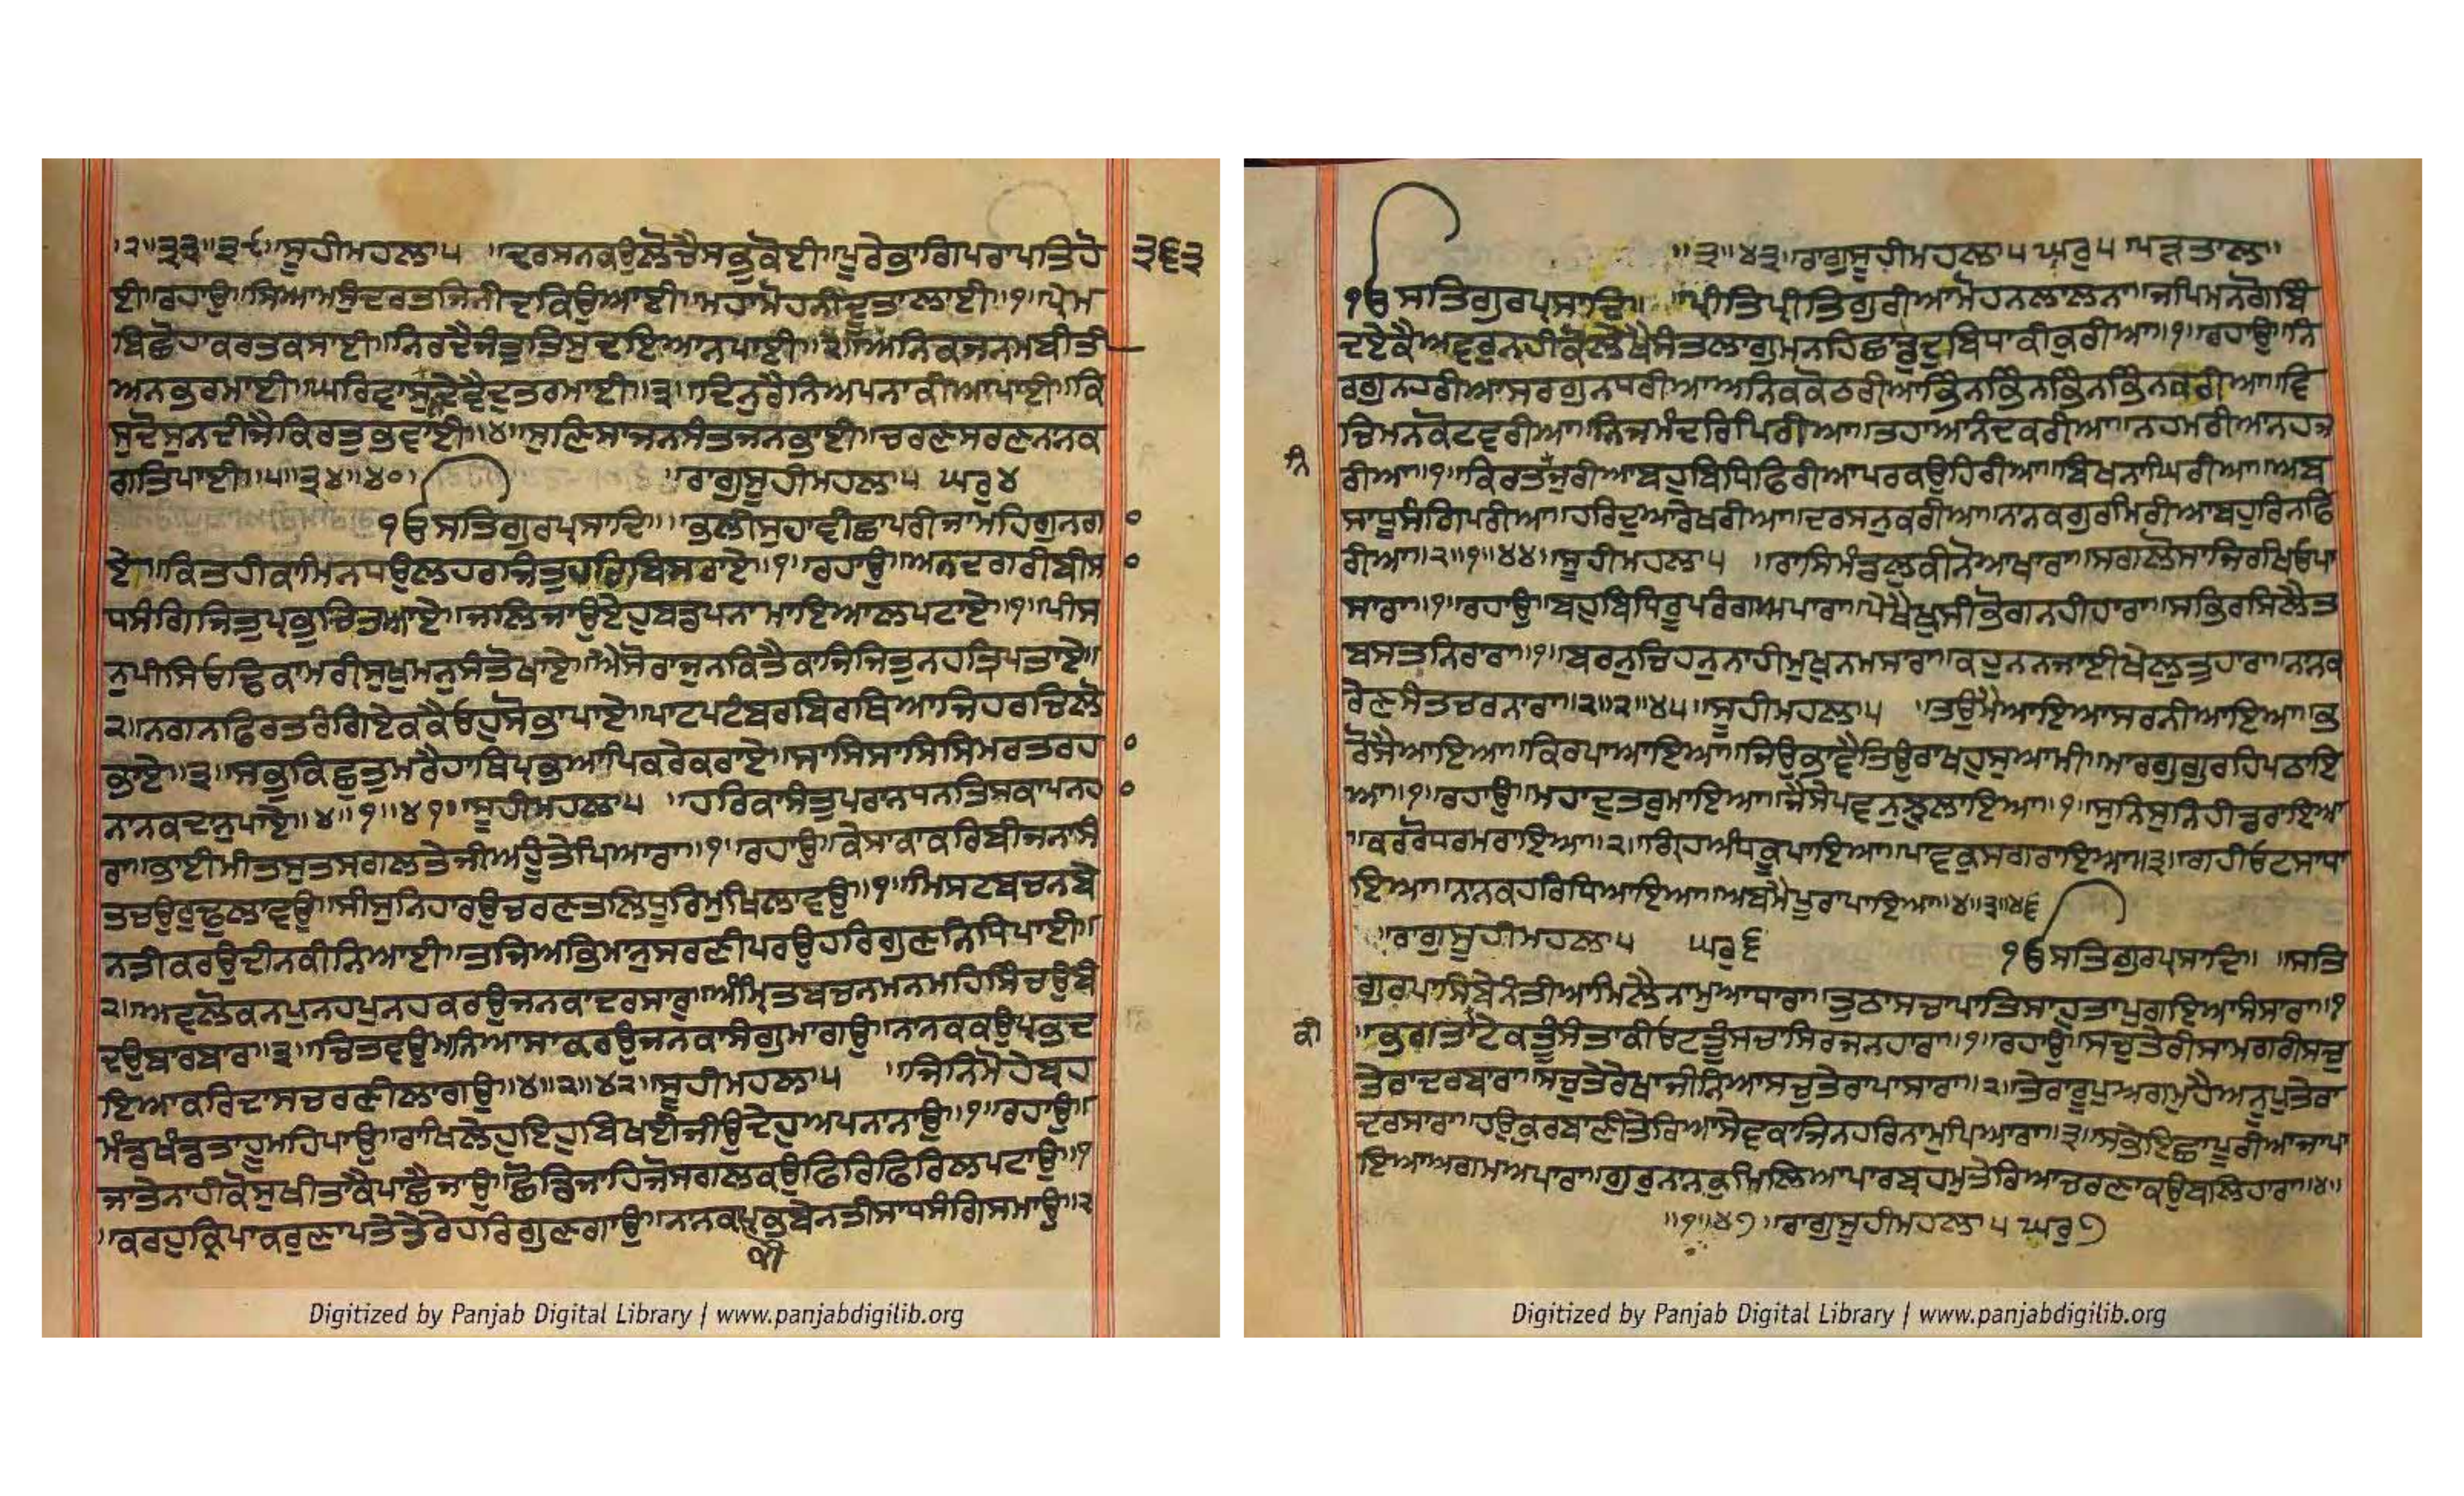 ।੨॥੩੩॥੩੯॥ਸੂਹੀਮਹਲਾ੫ ॥ਦਰਸਨਕਉਲੋਚੈਸਭੁਕੋਈ॥ਪੂਰੇਭਾਗਿਪਰਾਪਤਿਹੋ
੩੬੩
ਈ॥ਰਹਾਉ॥ਸਿਆਮਸੁੰਦਰਤਜਿਨੀਦਕਿਉਆਈ॥ਮਹਾਮੋਹਨੀਦੂਤਾਲਾਈ॥੧॥ਪ੍ਰੇਮ
ਬਿਛੋਹਾਕਰਤਕਸਾਈ॥ਨਿਰਦੈਜੰਤੁਤਿਸੁਦਇਆਨਪਾਈ॥੨॥ਅਨਿਕਜਨਮਬੀਤੀ
ਅਨਭਰਮਾਈ॥ਘਰਿਵਾਸੁਨਦੇਵੈਦੁਤਰਮਾਈ॥੩॥ਦਿਨੁਰੈਨਿਅਪਨਾਕੀਆਪਾਈ॥ਕਿ
ਸੁਦੋਸੁਨਦੀਜੈਕਿਰਤੁਭਵਾਈ॥੪॥ਸੁਣਿਸਾਜਨਸੰਤਜਨਭਾਈ॥ਚਰਣਸਰਣਨਨਕ
ਗਤਿਪਾਈ॥੫॥੩੪॥੪੦॥ ॥ਰਾਗੁਸੂਹੀਮਹਲਾ੫ ਘਰੁ੪
ੴਸਤਿਗੁਰਪ੍ਰਸਾਦਿ॥ ਭਲੀਸੁਹਾਵੀਛਾਪਰੀਜਾਮਹਿਗੁਨਗਾ
ਏ॥ਕਿਤਹੀਕਾਮਿਨਧਉਲਹਰਜਿਤੁਹਰਿਬਿਸਰਾਏ॥੧॥ਰਹਾਉ॥ਅਨਦਗਰੀਬੀਸਾ
ਧਸੰਗਿਜਿਤੁਪ੍ਰਭਚਿਤਆਏ॥ਜਲਿਜਾਉਏਹੁਬਡਪਨਾਮਾਇਆਲਪਟਾਏ॥੧॥ਪੀਸ
ਨੁਪੀਸਿਓਢਿਕਾਮਰੀਸੁਖੁਮਨੁਸੰਤੋਖਾਏ॥ਐਸੋਰਾਜੁਨਕਿਤੈਕਾਜਿਜਿਤੁਨਹਤ੍ਰਿਪਤਾਏ॥
੨॥ਨਗਨਫਿਰਤਰੰਗਿਏਕਕੈਓਹੁਸੋਭਾਪਾਏ॥ਪਾਟਪਟੰਬਰਬਿਰਥਿਆਜਿਹਰਚਿਲੋ
ਭਾਏ॥੩॥ਸਭੁਕਿਛੁਤੁਮਰੈਹਾਥਿਪ੍ਰਭਆਪਿਕਰੇਕਰਾਏ॥ਸਾਸਿਸਾਸਿਸਿਮਰਤਰਹਾ
ਨਾਨਕਦਾਨੁਪਾਏ॥੪॥੧॥੪੧॥ਸੂਹੀਮਹਲਾ੫ ॥ਹਰਿਕਾਸੰਤੁਪਰਾਨਧਨਤਿਸਕਾਪਨਹਾ
ਰਾ॥ਭਾਈਮੀਤਸੁਤਸਗਲਤੇਜੀਅਹੂੰਤੇਪਿਆਰਾ॥੧॥ਰਹਾਉ॥ਕੇਸਾਕਾਕਰਿਬੀਜਨਾਸੰ
ਤਚਉਰੁਢੁਲਾਵਉ॥ਸੀਸੁਨਿਹਾਰਉਚਰਣਤਲਿਧੂਰਿਮੁਖਿਲਾਵਉ॥੧॥ਮਿਸਟਬਚਨਬੇ
ਨਤੀਕਰਉਦੀਨਕੀਨਿਆਈ॥ਤਜਿਅਭਿਮਾਨੁਸਰਣੀਪਰਉਹਰਿਗੁਣਨਿਧਿਪਾਈ॥
੨॥ਅਵਲੋਕਨਪੁਨਹਪੁਨਹਕਰਉਜਨਕਾਦਰਸਾਰੁ॥ਅੰਮ੍ਰਿਤਬਚਨਮਨਮਹਿਸਿੰਚਉਬੰ
ਦਉਬਾਰਬਾਰ॥੩॥ਚਿਤਵਉਮਨਿਆਸਾਕਰਉਜਨਕਾਸੰਗੁਮਾਗਉ॥ਨਨਕਕਉਪ੍ਰਭਦ
ਇਆਕਰਿਦਾਸਚਰਣੀਲਾਗਉ॥੪॥੨॥੪੨॥ਸੂਹੀਮਹਲਾ੫ ॥ਜਿਨਿਮੋਹੇਬ੍ਰਹ
ਮੰਡਖੰਡਤਾਹੂਮਹਿਪਾਉ॥ਰਾਖਿਲੇਹੁਇਹੁਬਿਖਈਜੀਉਦੇਹੁਅਪਨਾਨਾਉ॥੧॥ਰਹਾਉ॥
ਜਾਤੇਨਾਹੀਕੋਸੁਖੀਤਾਕੈਪਾਛੈਜਾਉ॥ਛੋਡਿਜਾਹਿਜੋਸਗਲਕਉਫਿਰਿਫਿਰਿਲਪਟਾਉ॥੧
॥ਕਰਹੁਕ੍ਰਿਪਾਕਰੁਣਾਪਤੇਤੇਰੇਹਰਿਗੁਣਗਾਉ॥ਨਨਕਪ੍ਰਭਬੇਨਤੀਸਾਧਸੰਗਿਸਮਾਉ॥੨
ਕੀ
॥੩॥੪੩॥ਰਾਗੁਸੂਹੀਮਹਲਾ੫ਘਰੁ੫ਪੜਤਾਲ॥
ੴਸਤਿਗੁਰਪ੍ਰਸਾਦਿ॥ ॥ਪ੍ਰੀਤਿਪ੍ਰੀਤਿਗੁਰੀਆਮੋਹਨਲਾਲਨਾ॥ਜਪਿਮਨਗੋਬਿੰ
ਦਏਕੈਅਵਰੁਨਹੀਕੋਲੇਖੈਸੰਤਲਾਗੁਮਨਹਿਛਾਡੁਦੁਬਿਧਾਕੀਕੁਰੀਆ॥੧॥ਰਹਾਉ॥ਨਿ
ਰਗੁਨਹਰੀਆਸਰਗੁਨਧਰੀਆਅਨਿਕਕੋਠਰੀਆਭਿੰਨਭਿੰਨਭਿੰਨਭਿੰਨਕਰੀਆ॥ਵਿ
ਚਿਮਨਕੋਟਵਰੀਆ॥ਨਿਜਮੰਦਰਿਪਿਰੀਆ॥ਤਹਾਆਨੰਦਕਰੀਆ॥ਨਹਮਰੀਆਨਹਜ
ਨਿ
ਰੀਆ॥੧॥ਕਿਰਤਜੁਰੀਆਬਹੁਬਿਧਿਫਿਰੀਆਪਰਕਉਹਿਰੀਆ॥ਬਿਖਨਾਘਿਰੀਆ॥ਅਬ
ਸਾਧੂਸੰਗਿਪਰੀਆ॥ਹਰਿਦੁਆਰੈਖਰੀਆ॥ਦਰਸਨੁਕਰੀਆ॥ਨਾਨਕਗੁਰਮਿਰੀਆਬਹੁਰਿਨਫਿ
ਰੀਆ॥੨॥੧॥੪੪॥ਸੂਹੀਮਹਲਾ੫ ॥ਰਾਸਿਮੰਡਲੁਕੀਨੋਆਖਾਰਾ॥ਸਗਲੋਸਾਜਿਰਖਿਓਪਾ
ਸਾਰਾ॥੧॥ਰਹਾਉ॥ਬਹੁਬਿਧਿਰੂਪਰੰਗਆਪਾਰਾ॥ਪੇਖੈਖੁਸੀਭੋਗਨਹੀਹਾਰਾ॥ਸਭਿਰਸਿਲੈਤ
ਬਸਤਨਿਰਾਰਾ॥੧॥ਬਰਨੁਚਿਹਨੁਨਾਹੀਮੁਖੁਨਮਸਾਰਾ॥ਕਹਨੁਨਜਾਈਖੇਲੁਤੁਹਾਰਾ॥ਨਨਕ
ਰੇਣਸੰਤਚਰਨਾਰਾ॥੨॥੨॥੪੫॥ਸੂਹੀਮਹਲਾ੫ ॥ਤਉਮੈਆਇਆਸਰਨੀਆਇਆ॥ਭ
ਰੋਸੈਆਇਆ॥ਕਿਰਪਾਆਇਆ॥ਜਿਉਭਾਵੈਤਿਉਰਾਖਹੁਸੁਆਮੀ॥ਮਾਰਗੁਗੁਰਹਿਪਠਾਇ
ਆ॥੧॥ਰਹਾਉ॥ਮਹਾਦੁਤਰੁਮਾਇਆ॥ਜੈਸੇਪਵਨੁਝੁਲਾਇਆ॥੧॥ਸੁਨਿਸੁਨਿਹੀਡਰਾਇਆ
॥ਕਰਰੋਧ੍ਰਮਰਾਇਆ॥੨॥ਗ੍ਰਿਹਅੰਧਕੂਪਾਇਆ॥ਪਾਵਕੁਸਗਰਾਇਆ॥੩॥ਗਹੀਓਟਸਾਧਾ
ਇਆ॥ਨਾਨਕਹਰਿਧਿਆਇਆ॥ਅਬਮੈਪੂਰਾਪਾਇਆ॥੪॥੩॥੪੬
॥ਰਾਗੁਸੂਹੀਮਹਲਾ੫ ਘਰੁ੬ ੴਸਤਿਗੁਰਪ੍ਰਸਾਦਿ॥ ॥ਸਤਿ
ਗੁਰਪਾਸਿਬੇਨੰਤੀਆਮਿਲੈਨਾਮੁਆਧਾਰਾ॥ਤੁਠਾਸਚਾਪਾਤਿਸਾਹੁਤਾਪੁਗਇਆਸੰਸਾਰਾ॥੧
ਕੀ
॥ਭਗਤਾਟੇਕਤੂੰਸੰਤਾਕੀਓਟਤੂੰਸਚਾਸਿਰਜਨਹਾਰਾ॥੧॥ਰਹਾਉ॥ਸਚੁਤੇਰੀਸਾਮਗਰੀਸਚੁ
ਤੇਰਾਦਰਬਾਰਾ॥ਸਚੁਤੇਰੇਖਾਜੀਨਿਆਸਚੁਤੇਰਾਪਾਸਾਰਾ॥੨॥ਤੇਰਾਰੂਪੁਅਗਮੁਹੈਅਨੂਪੁਤੇਰਾ
ਦਰਸਾਰਾ॥ਹਉਕੁਰਬਾਣੀਤੇਰਿਆਸੇਵਕਾਜਿਨਹਰਿਨਾਮੁਪਿਆਰਾ॥੩॥ਸਭੇਇਛਾਪੂਰੀਆਜਾਪਾ
ਇਆਅਗਮਅਪਾਰਾ॥ਗੁਰੁਨਾਨਕੁਮਿਲਿਆਪਾਰਬ੍ਰਹਮੁਤੇਰਿਆਚਰਣਾਕਉਬਲਿਹਾਰਾ॥੪॥
॥੧॥੪੭॥ਰਾਗੁਸੂਹੀਮਹਲਾ੫ਘਰੁ੭
Digitized by Panjab Digital Library | www.panjabdigilib.org
Digitized by Panjab Digital Library | www.panjabdigilib.org